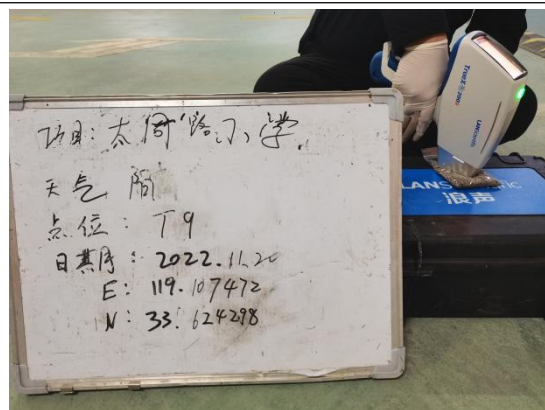 项目：太周路小学
天气 阴
点位：T9
日期：2022.11.20
E：119.107472
N：33.624298
TrueX 200S
LANScientific
浪声